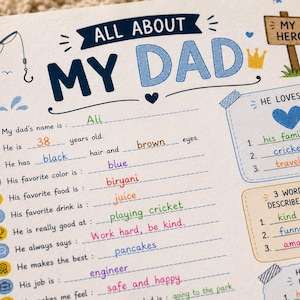 ALL ABOUT
MY DAD
MY
HERO
My dad's name is: Ali
He is 38 years old
He has black hair and brown eyes
His favorite color is: blue
His favorite food is: biryani
His favorite drink is: juice
He is really good at: playing cricket
He always says: Work hard, be kind.
He makes the best: pancakes
His job is: engineer
makes me feel: safe and happy
dad is: going to the park
HE LOVES
1. his fam
2. cricke
3. trave
3 WORD
DESCRIBE
1. kind
2. funn
3. ama